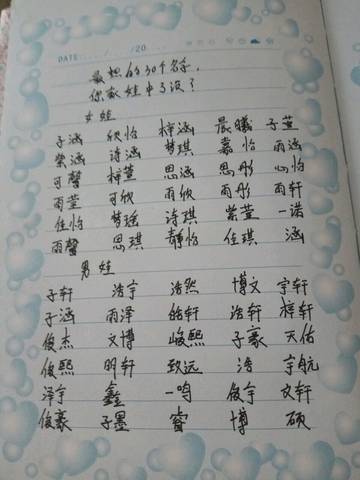 DATE: / /20
最炽的30个名字，
你家娃中了没？
女娃
子涵 欣怡 梓涵 晨曦 子萱
紫涵 诗涵 梦琪 嘉怡 雨涵
可馨 梓萱 思涵 思彤 心怡
雨萱 可欣 雨欣 雨彤 雨轩
佳怡 梦瑶 诗琪 紫萱 一诺
雨馨 思琪 静怡 佳琪 涵
男娃
子轩 浩宇 浩然 博文 宇轩
子涵 雨泽 皓轩 浩轩 梓轩
俊杰 文博 峻熙 子豪 天佑
俊熙 明轩 致远 浩 宇航
泽宇 鑫 一鸣 俊宇 文轩
俊豪 子墨 睿 博 硕